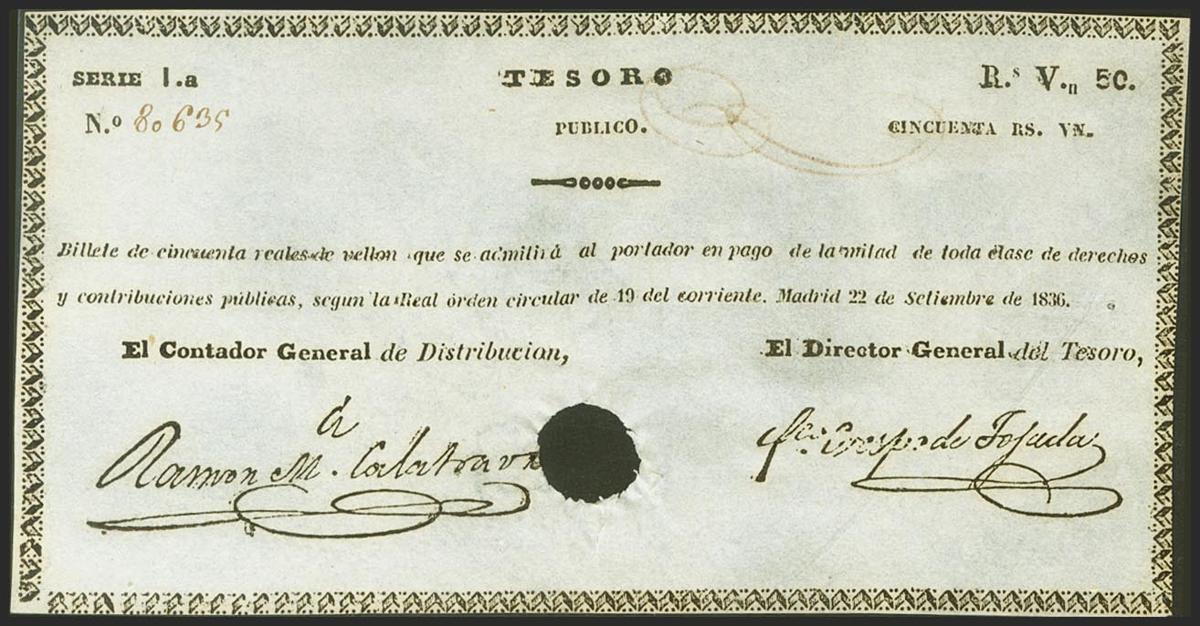 SERIE 1.a TESORO R.s V.n 50.
N.o 80635 PUBLICO. CINCUENTA RS. VN.
Billete de cincuenta reales de vellon que se admitirá al portador en pago de la mitad de toda clase de derechos
y contribuciones públicas, segun la Real órden circular de 19 del corriente. Madrid 22 de Setiembre de 1836.
El Contador General de Distribucion, El Director General del Tesoro,
Ramon M.a Calatrava de